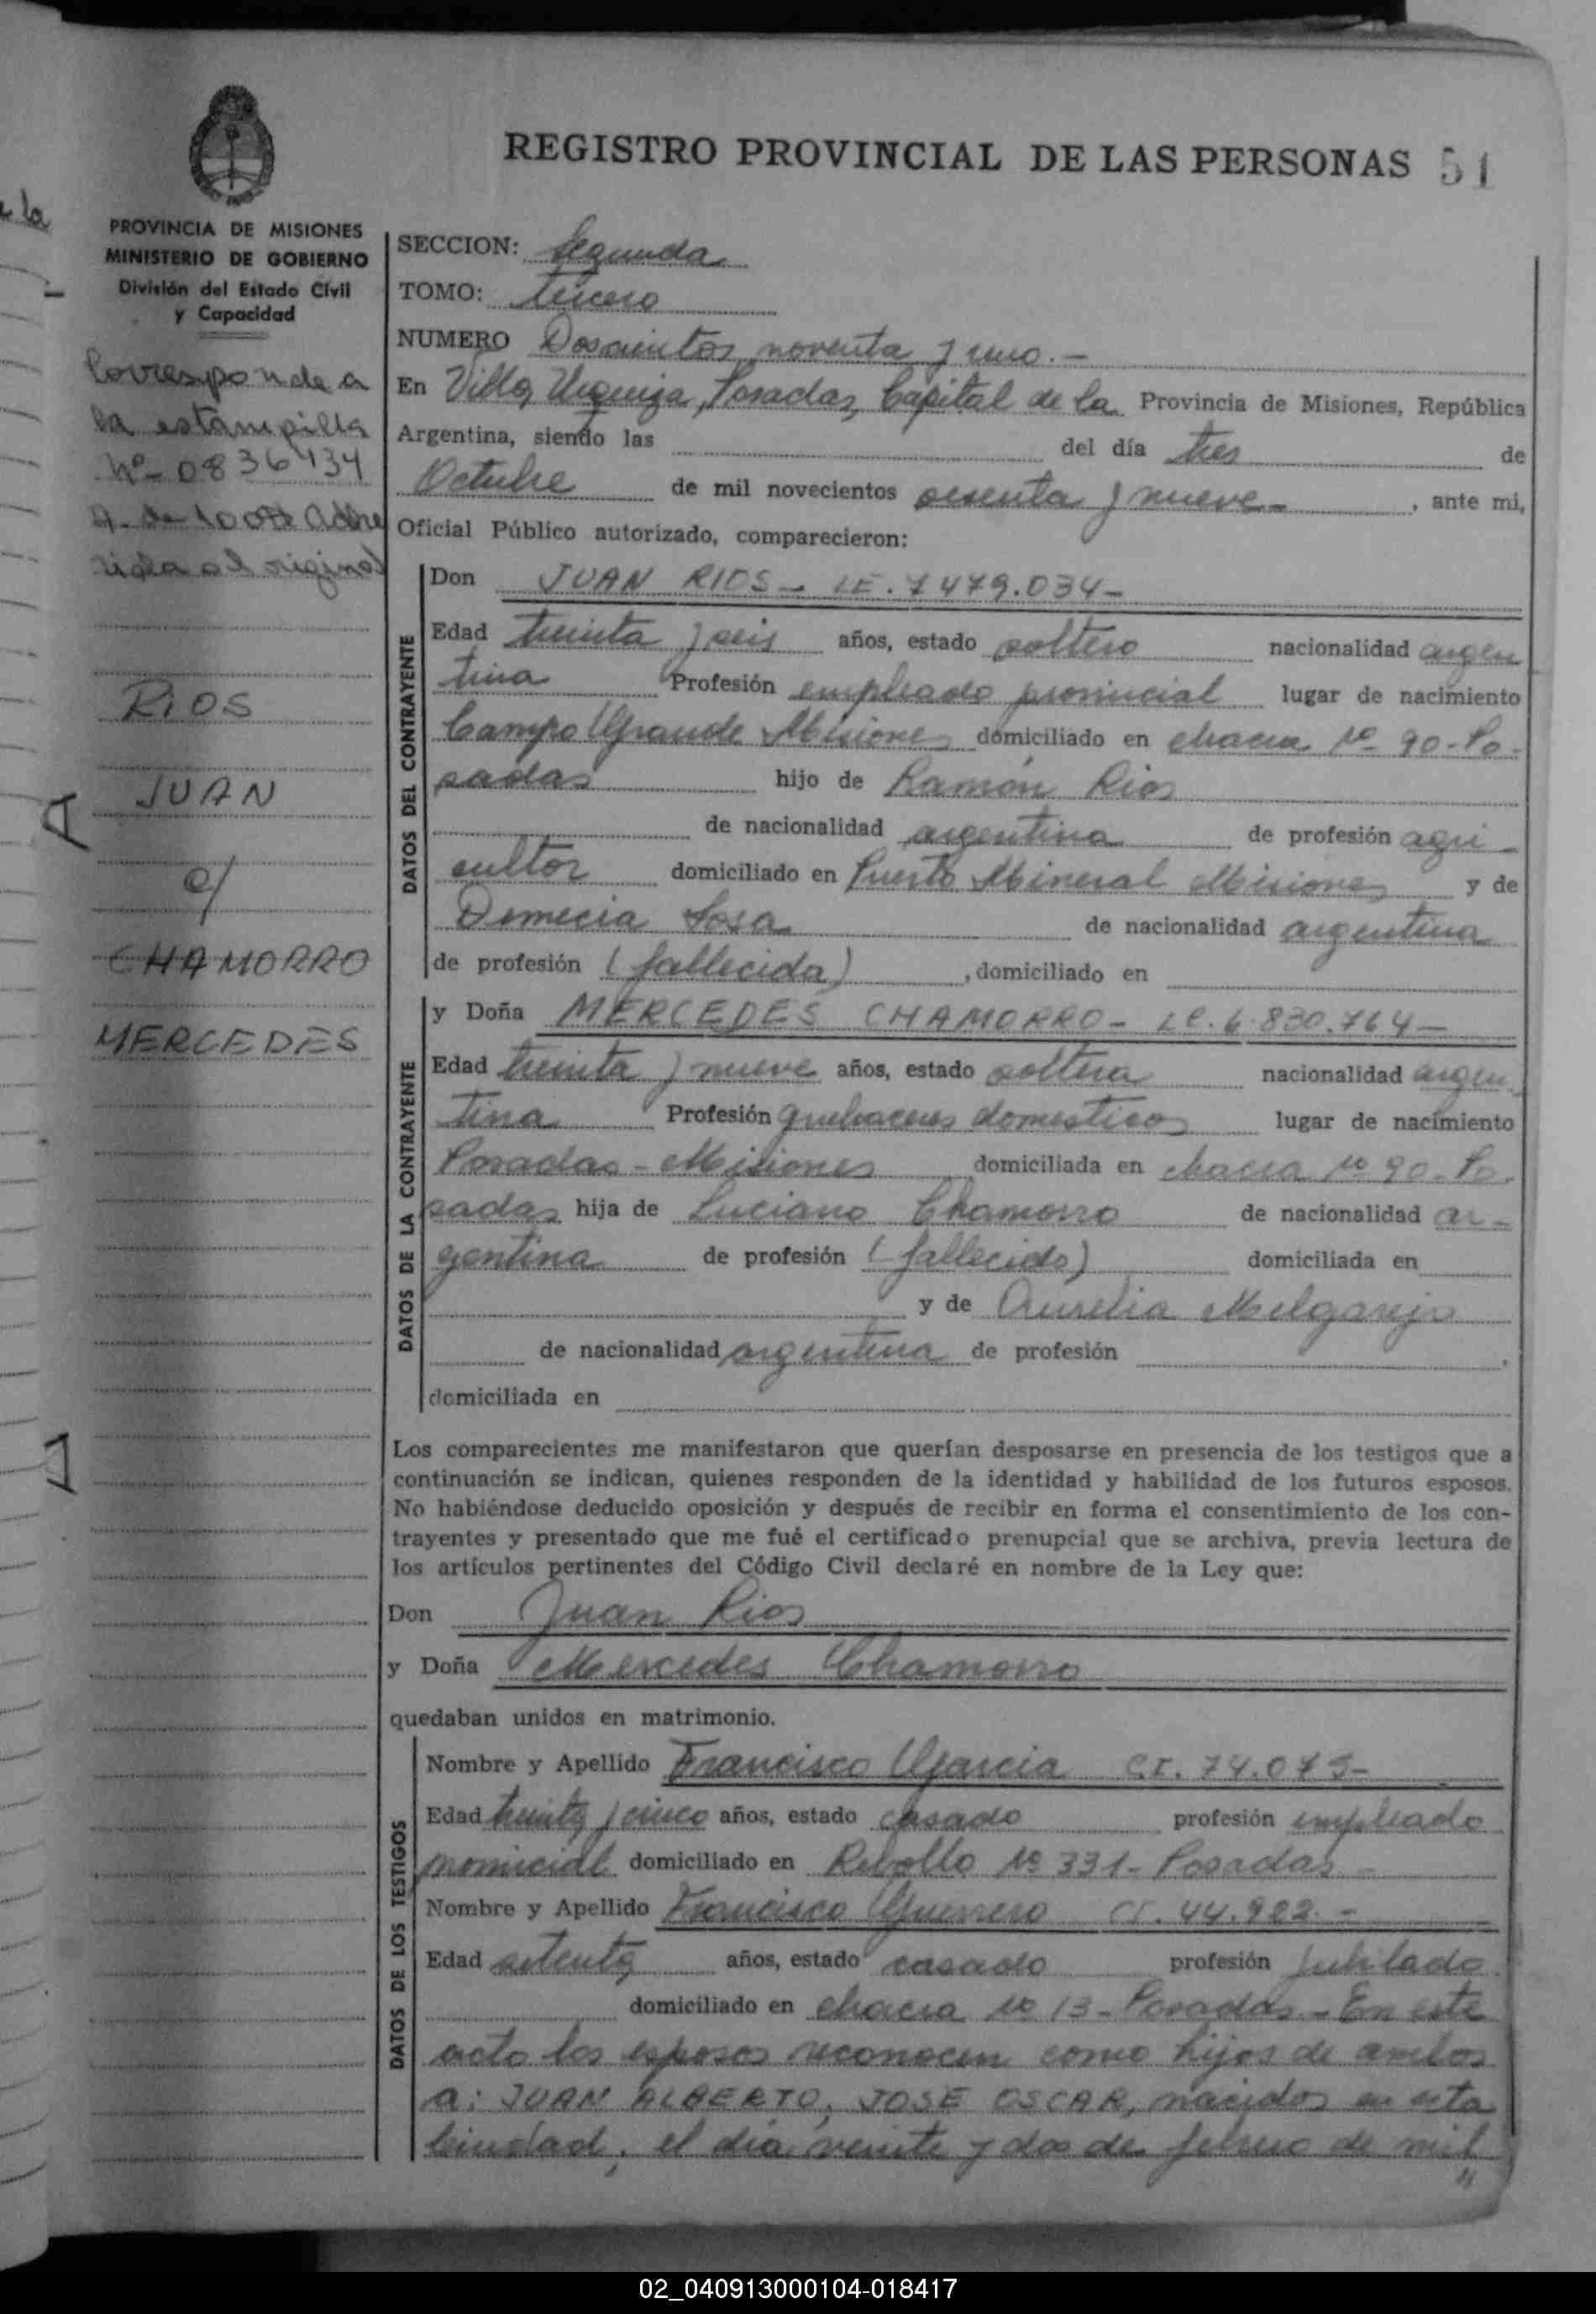 REGISTRO PROVINCIAL DE LAS PERSONAS 51
PROVINCIA DE MISIONES
MINISTERIO DE GOBIERNO
División del Estado Civil
y Capacidad
Corresponde a
la estampilla
nº 0836434
adhe
rida al original
RIOS
JUAN
c/
CHAMORRO
MERCEDES
SECCION: Segunda
TOMO: tercero
NUMERO Doscientos noventa y uno.-
En Villa Urquiza, Posadas, Capital de la Provincia de Misiones, República
Argentina, siendo las del día tres de
Octubre de mil novecientos sesenta y nueve- , ante mi,
Oficial Público autorizado, comparecieron:
DATOS DEL CONTRAYENTE
Don JUAN RIOS- LE. 7479.034-
Edad treinta y seis años, estado soltero nacionalidad argen
tina Profesión empleado provincial lugar de nacimiento
Campo Grande Misiones domiciliado en chacra Nº 90-Po-
sadas hijo de Ramón Rios
de nacionalidad argentina de profesión agri-
cultor domiciliado en Puerto Mineral Misiones y de
Domecia Sosa de nacionalidad argentina
de profesión (fallecida) , domiciliado en
DATOS DE LA CONTRAYENTE
y Doña MERCEDES CHAMORRO- LC. 6.830.764-
Edad treinta y nueve años, estado soltera nacionalidad argen
tina Profesión quehaceres domesticos lugar de nacimiento
Posadas-Misiones domiciliada en chacra Nº 90-Po-
sadas hija de Luciano Chamorro de nacionalidad ar-
gentina de profesión (fallecido) domiciliada en
y de Aurelia Melgarejo
de nacionalidad argentina de profesión ,
domiciliada en
Los comparecientes me manifestaron que querían desposarse en presencia de los testigos que a
continuación se indican, quienes responden de la identidad y habilidad de los futuros esposos.
No habiéndose deducido oposición y después de recibir en forma el consentimiento de los con-
trayentes y presentado que me fué el certificado prenupcial que se archiva, previa lectura de
los artículos pertinentes del Código Civil declaré en nombre de la Ley que:
Don Juan Rios
y Doña Mercedes Chamorro
quedaban unidos en matrimonio.
DATOS DE LOS TESTIGOS
Nombre y Apellido Francisco Garcia CI. 74.073-
Edad treinta y cinco años, estado casado profesión empleado
provincial domiciliado en Rebollo Nº 331- Posadas-
Nombre y Apellido Francisco Guerrero CI. 44.922.-
Edad setenta años, estado casado profesión jubilado
domiciliado en chacra Nº 13-Posadas.- En este
acto los esposos reconocen como hijos de ambos
a: JUAN ALBERTO, JOSE OSCAR, nacidos en esta
Ciudad, el día veinte y dos de febrero de mil
"
02_040913000104-018417